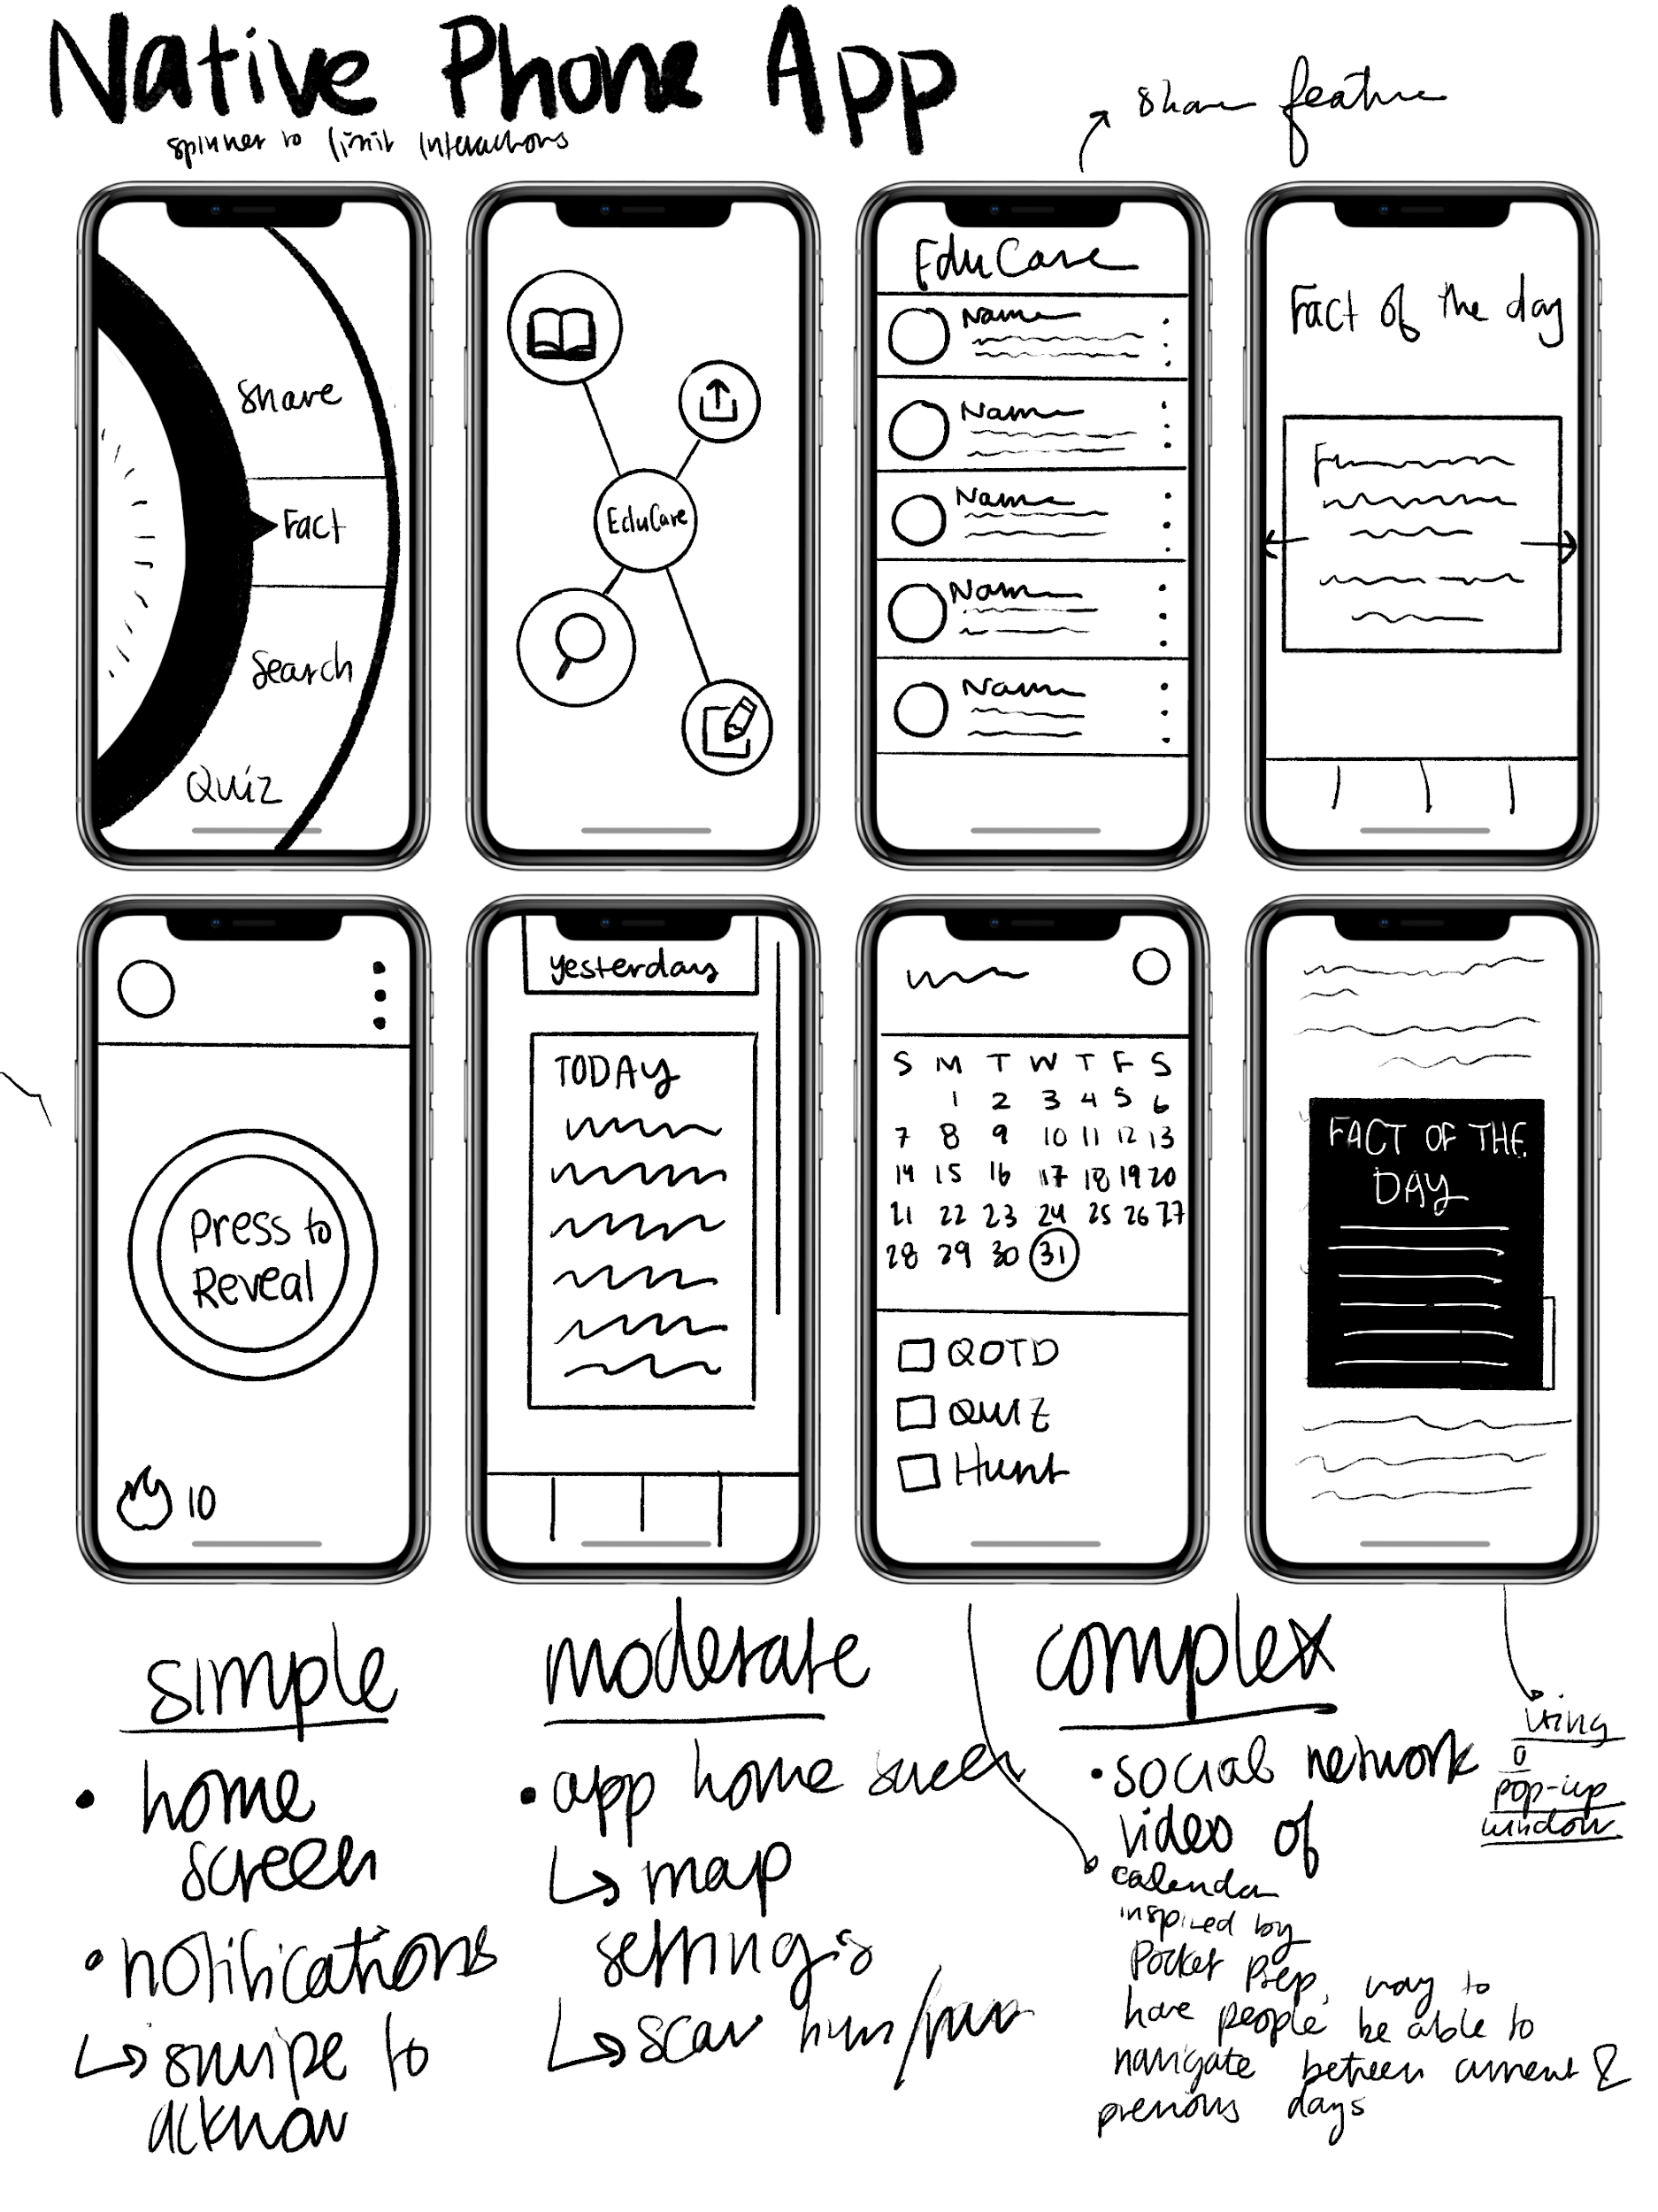 Native Phone App
spinner to limit interactions
share feature
Share
Fact
Search
Quiz
EduCare
EduCare
Name
Name
Name
Name
Name
Fact of the day
Press to
Reveal
10
yesterday
TODAY
S M T W T F S
1 2 3 4 5 6
7 8 9 10 11 12 13
14 15 16 17 18 19 20
21 22 23 24 25 26 27
28 29 30 31
QOTD
QUIZ
Hunt
FACT OF THE
DAY
simple
• home
screen
• notifications
↳ swipe to
acknow
moderate
• app home screen
↳ map
settings
↳ scav hunt
complex
• social network
video of
calendar
inspired by
Pocket Prep, way to
have people be able to
navigate between current &
previous days
using
a
pop-up
window